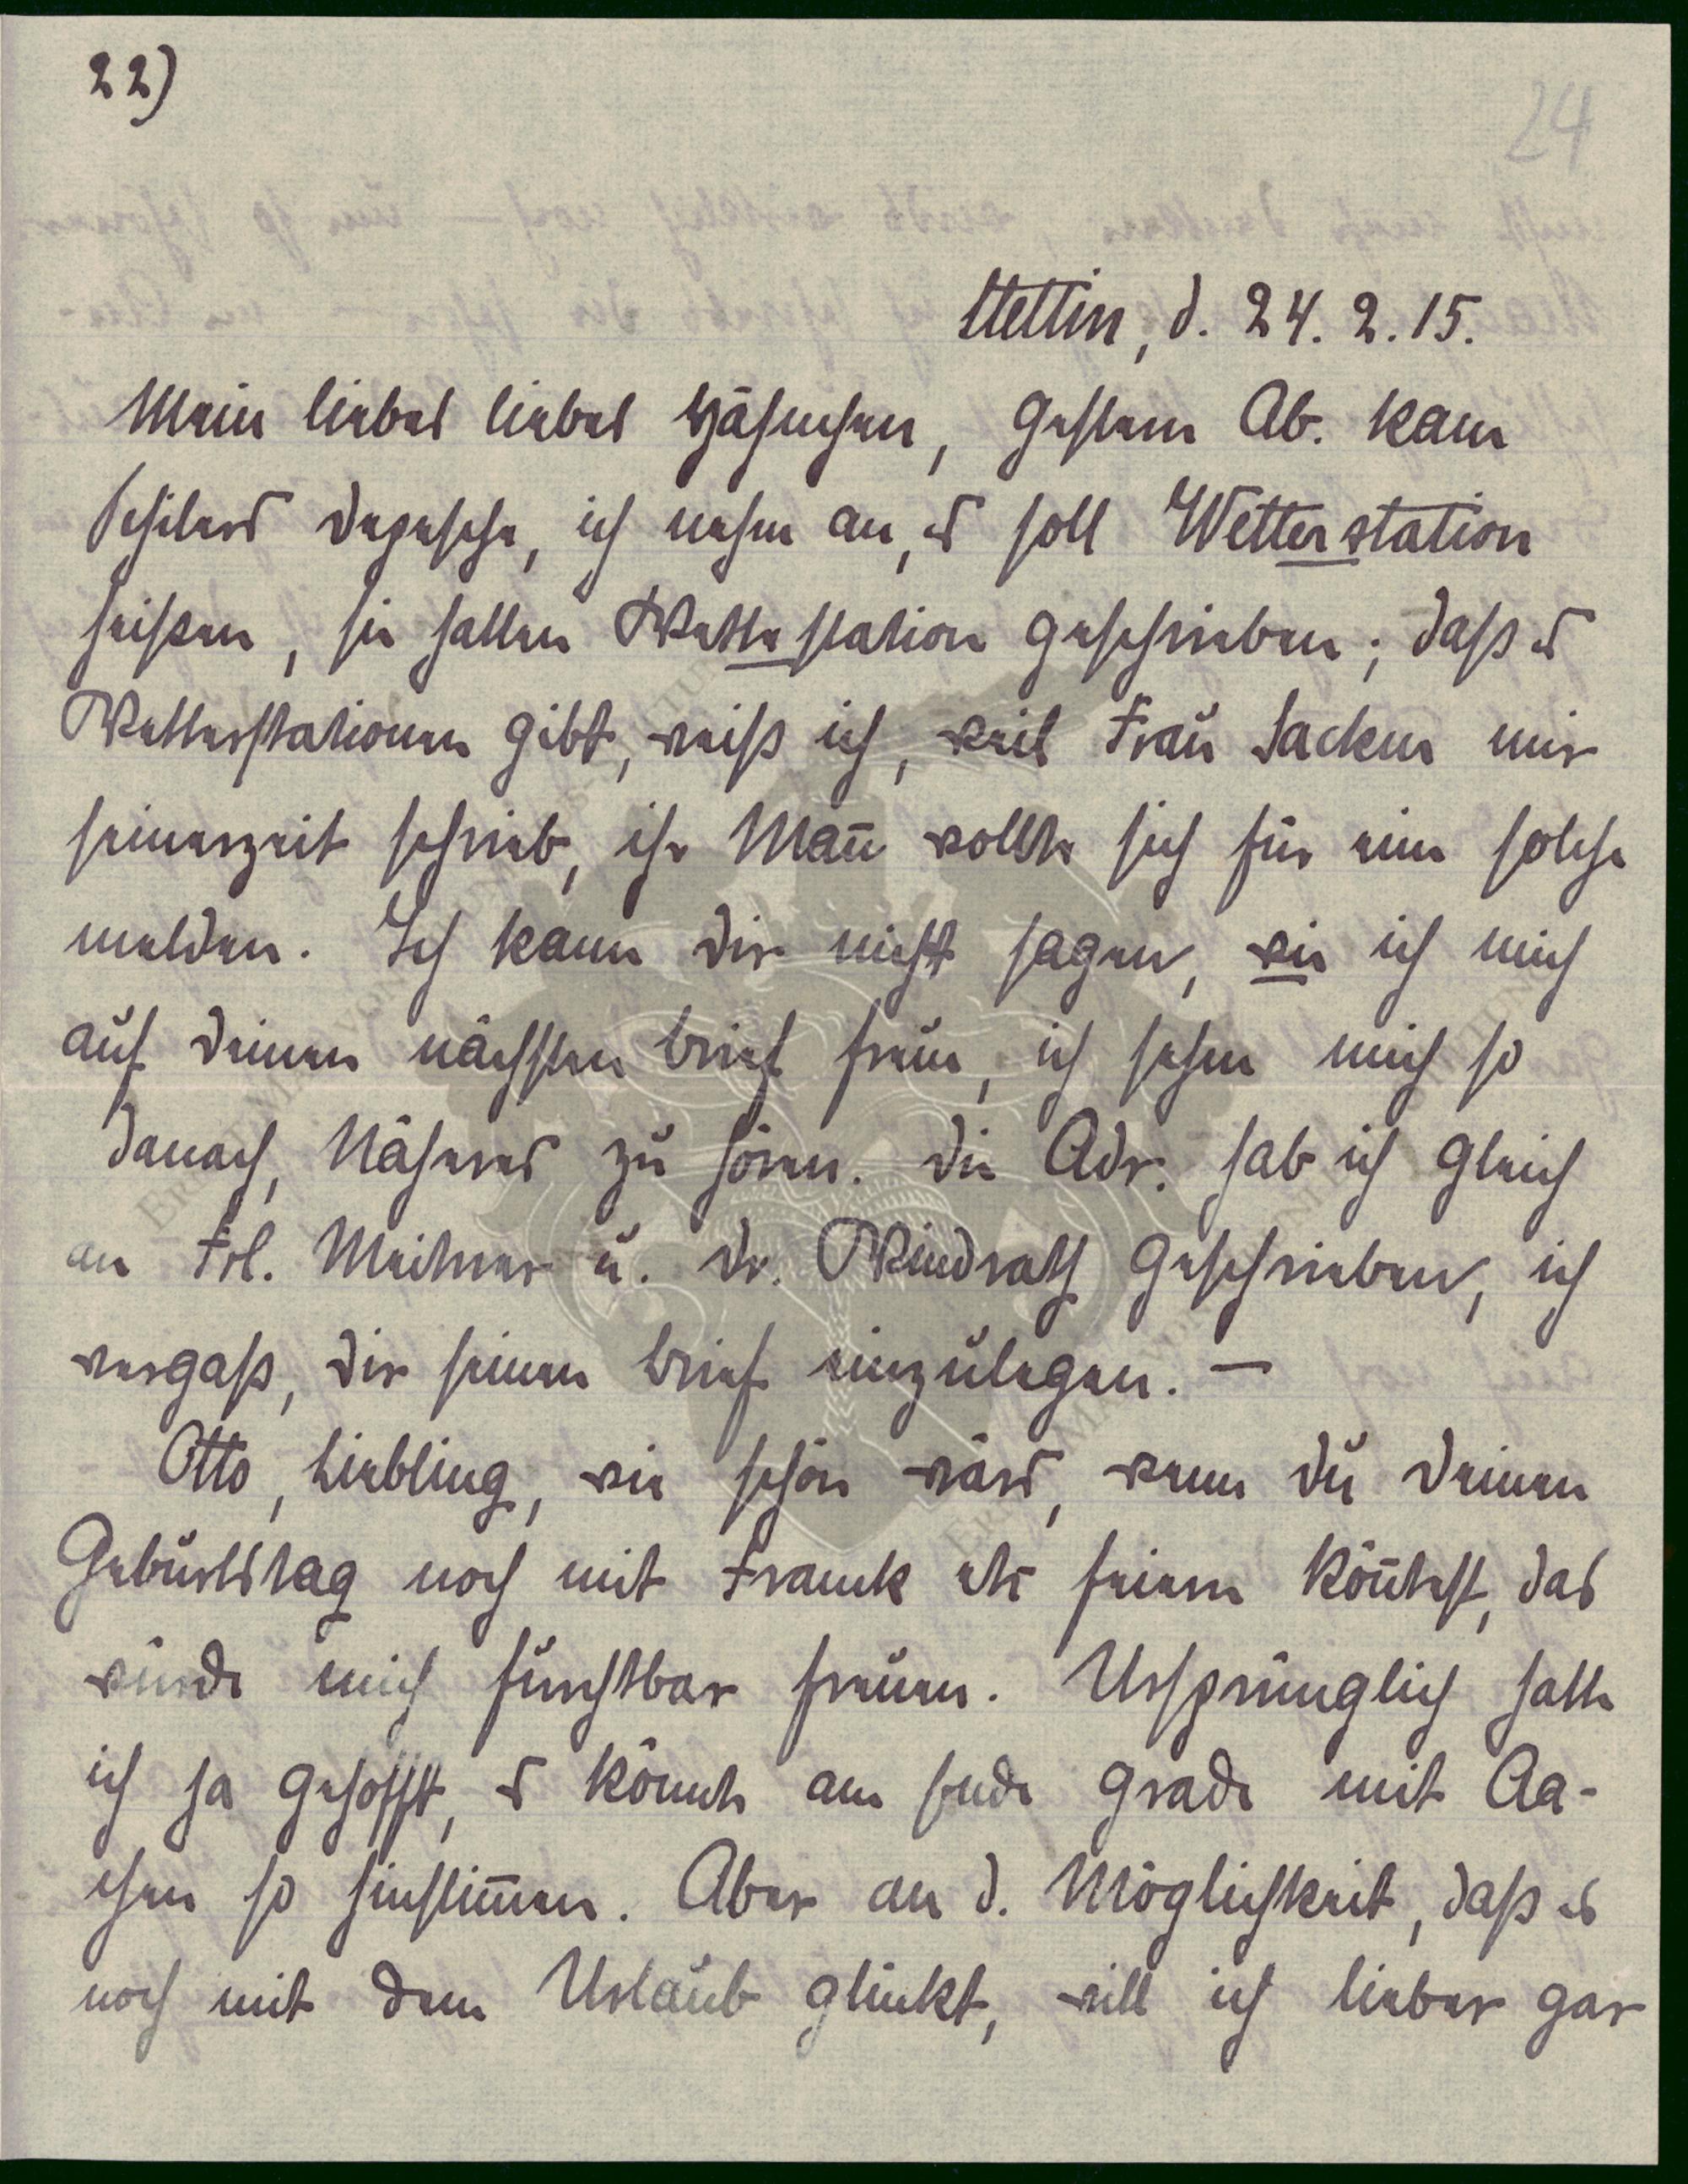 22)
24
Stettin, d. 24.2.15.
Mein liebes liebes Häschen, gestern Ab. kam
Depesche, ich nehm an, es soll Wetterstation
heißen, sie hatten Wettestation geschrieben; daß es
Wetterstationen gibt, weiß ich, weil Frau Sackur mir
seinerzeit schrieb, ihr Mañ wollte sich für eine solche
melden. Ich kann dir nicht sagen, wie ich mich
auf deinen nächsten Brief freue, ich sehne mich so
danach, Näheres zu hören. Die Adr. hab ich gleich
an Frl. Meitner u. Dr. Windrath geschrieben, ich
vergaß, dir seinen Brief einzulegen. —
Otto, Liebling, wie schön wärs, wenn du deinen
Geburtstag noch mit Franck etc feiern köñtest, das
würde mich furchtbar freuen. Ursprünglich hatte
ich ja gehofft, es könnte am Ende grade mit Aa-
chen so hinstim̄en. Aber an d. Möglichkeit, daß es
noch mit dem Urlaub glückt, will ich lieber gar